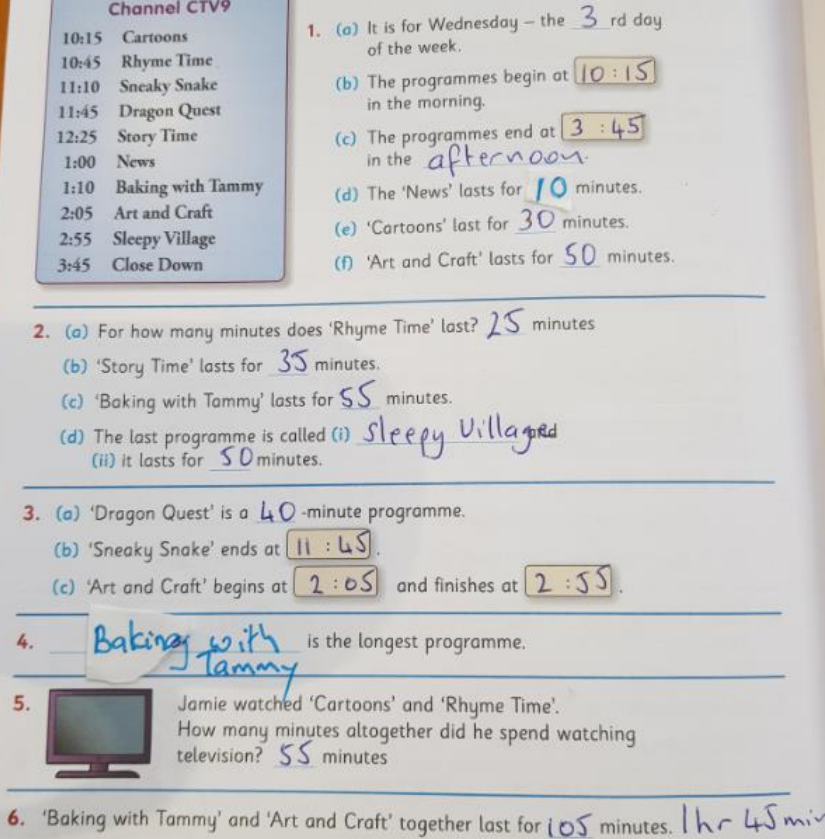 Channel CTV9
10:15 Cartoons
10:45 Rhyme Time
11:10 Sneaky Snake
11:45 Dragon Quest
12:25 Story Time
1:00 News
1:10 Baking with Tammy
2:05 Art and Craft
2:55 Sleepy Village
3:45 Close Down
1. (a) It is for Wednesday – the 3 rd day
of the week.
(b) The programmes begin at 10:15
in the morning.
(c) The programmes end at 3:45
in the afternoon.
(d) The ‘News’ lasts for 10 minutes.
(e) ‘Cartoons’ last for 30 minutes.
(f) ‘Art and Craft’ lasts for 50 minutes.
2. (a) For how many minutes does ‘Rhyme Time’ last? 25 minutes
(b) ‘Story Time’ lasts for 35 minutes.
(c) ‘Baking with Tammy’ lasts for 55 minutes.
(d) The last programme is called (i) Sleepy Village
(ii) it lasts for 50 minutes.
3. (a) ‘Dragon Quest’ is a 40-minute programme.
(b) ‘Sneaky Snake’ ends at 11:45.
(c) ‘Art and Craft’ begins at 2:05 and finishes at 2:55.
4. Baking with is the longest programme.
Tammy
5. Jamie watched ‘Cartoons’ and ‘Rhyme Time’.
How many minutes altogether did he spend watching
television? 55 minutes
6. ‘Baking with Tammy’ and ‘Art and Craft’ together last for 105 minutes. 1hr 45 min